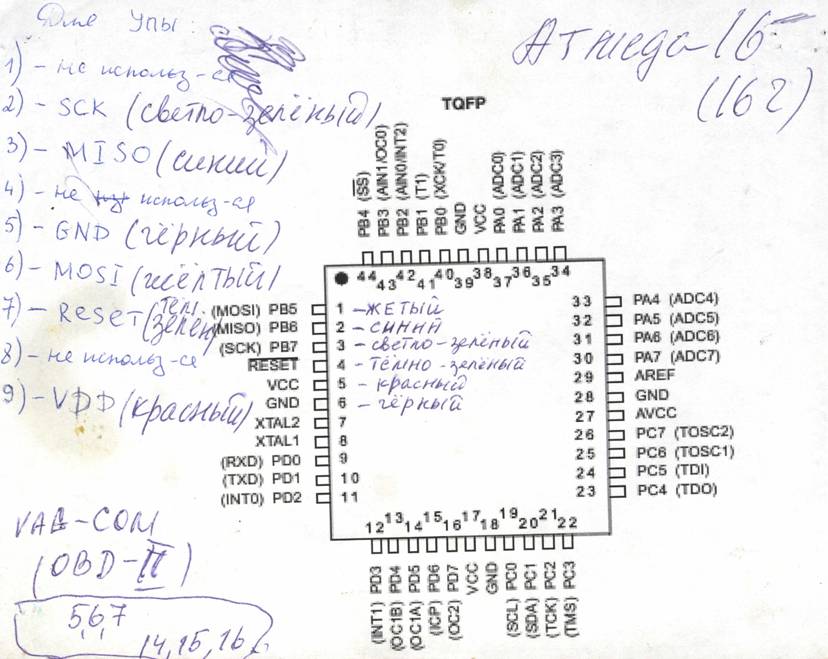 Для Упы:
Атмега-16
(162)
1) - не использ-ся
2) - SCK (светло-зелёный)
3) - MISO (синий)
4) - не использ-ся
5) - GND (чёрный)
6) - MOSI (жёлтый)
7) - Reset (тём. зелён)
8) - не использ-ся
9) - VDD (красный)
VAG-COM
(OBD-II)
5,6,7
14,15,16
TQFP
PB4 (SS)
PB3 (AIN1/OC0)
PB2 (AIN0/INT2)
PB1 (T1)
PB0 (XCK/T0)
GND
VCC
PA0 (ADC0)
PA1 (ADC1)
PA2 (ADC2)
PA3 (ADC3)
44 43 42 41 40 39 38 37 36 35 34
(MOSI) PB5 1 - жетый
(MISO) PB6 2 - синий
(SCK) PB7 3 - светло-зелёный
RESET 4 - тёмно-зелёный
VCC 5 - красный
GND 6 - чёрный
XTAL2 7
XTAL1 8
(RXD) PD0 9
(TXD) PD1 10
(INT0) PD2 11
33 PA4 (ADC4)
32 PA5 (ADC5)
31 PA6 (ADC6)
30 PA7 (ADC7)
29 AREF
28 GND
27 AVCC
26 PC7 (TOSC2)
25 PC6 (TOSC1)
24 PC5 (TDI)
23 PC4 (TDO)
12 13 14 15 16 17 18 19 20 21 22
(INT1) PD3
(OC1B) PD4
(OC1A) PD5
(ICP) PD6
(OC2) PD7
VCC
GND
(SCL) PC0
(SDA) PC1
(TCK) PC2
(TMS) PC3